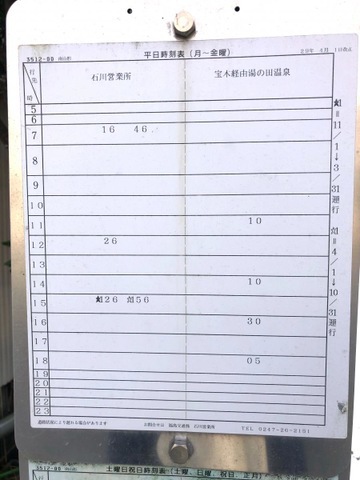 3512-00
平日時刻表(月~金曜)
行先
時
石川営業所
宝木経由湯の田温泉
5
6
7 16 46
8
9
10
11 10
12 26
13
14 10
15 26 56
16 30
17
18 05
19
20
21
22
23
=11/1→3/31運行
=4/1→10/31運行
道路状況により遅れる場合があります
福島交通 石川営業所
TEL 0247-26-2151
3512-00
土曜日祝日時刻表(土曜、日曜、祝日、